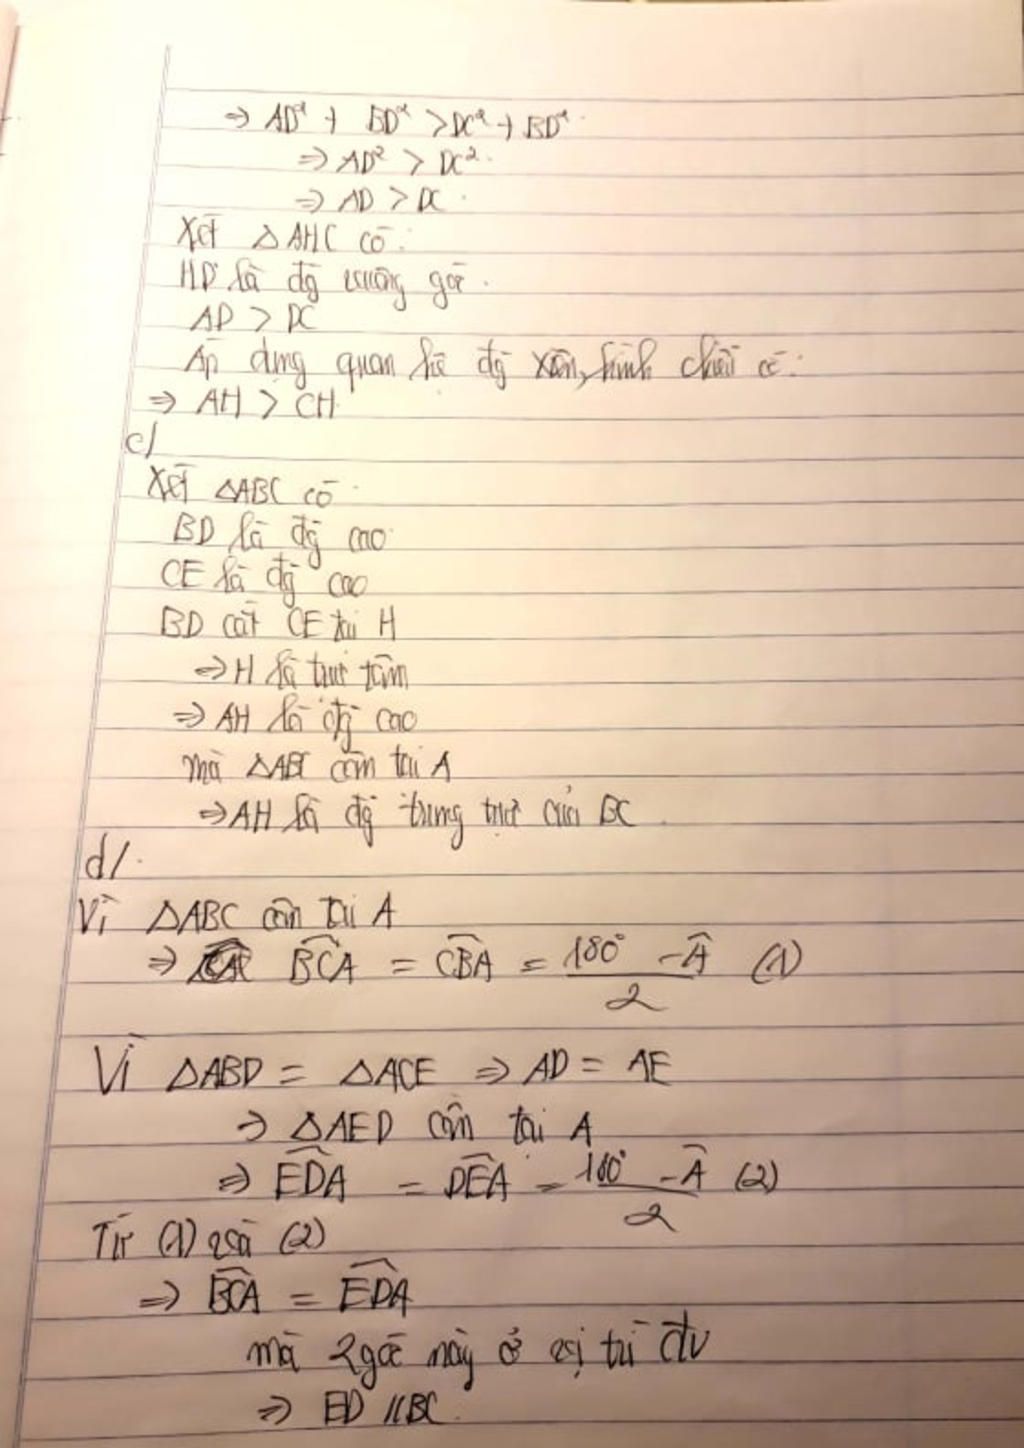 ⇒ AD² + BD² > DC² + BD²
⇒ AD² > DC²
⇒ AD > DC
Xét △AHC có:
HD là đg vuông góc
AD > DC
Áp dụng quan hệ đg xiên, hình chiếu có:
⇒ AH > CH
c/
Xét △ABC có
BD là đg cao
CE là đg cao
BD cắt CE tại H
⇒ H là trực tâm
⇒ AH là đg cao
mà △ABC cân tại A
⇒ AH là đg trung trực của BC
d/
Vì △ABC cân tại A
⇒ BCA = CBA = 180° - A / 2 (1)
Vì △ABD = △ACE ⇒ AD = AE
⇒ △AED cân tại A
⇒ EDA = DEA = 180° - A / 2 (2)
Từ (1) và (2)
⇒ BCA = EDA
mà 2 góc này ở vị trí đv
⇒ ED // BC